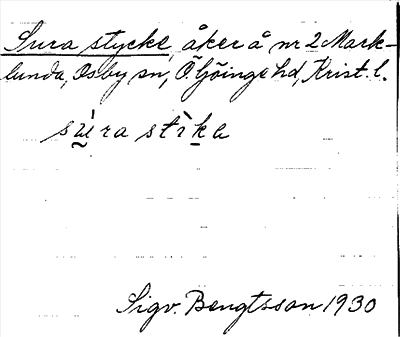 Sura stycke, åker å nr 2 Mark-
lunda, Osby sn, Ö Göinge hd, Krist. l.
sùra stìka
Sigv. Bengtsson 1930